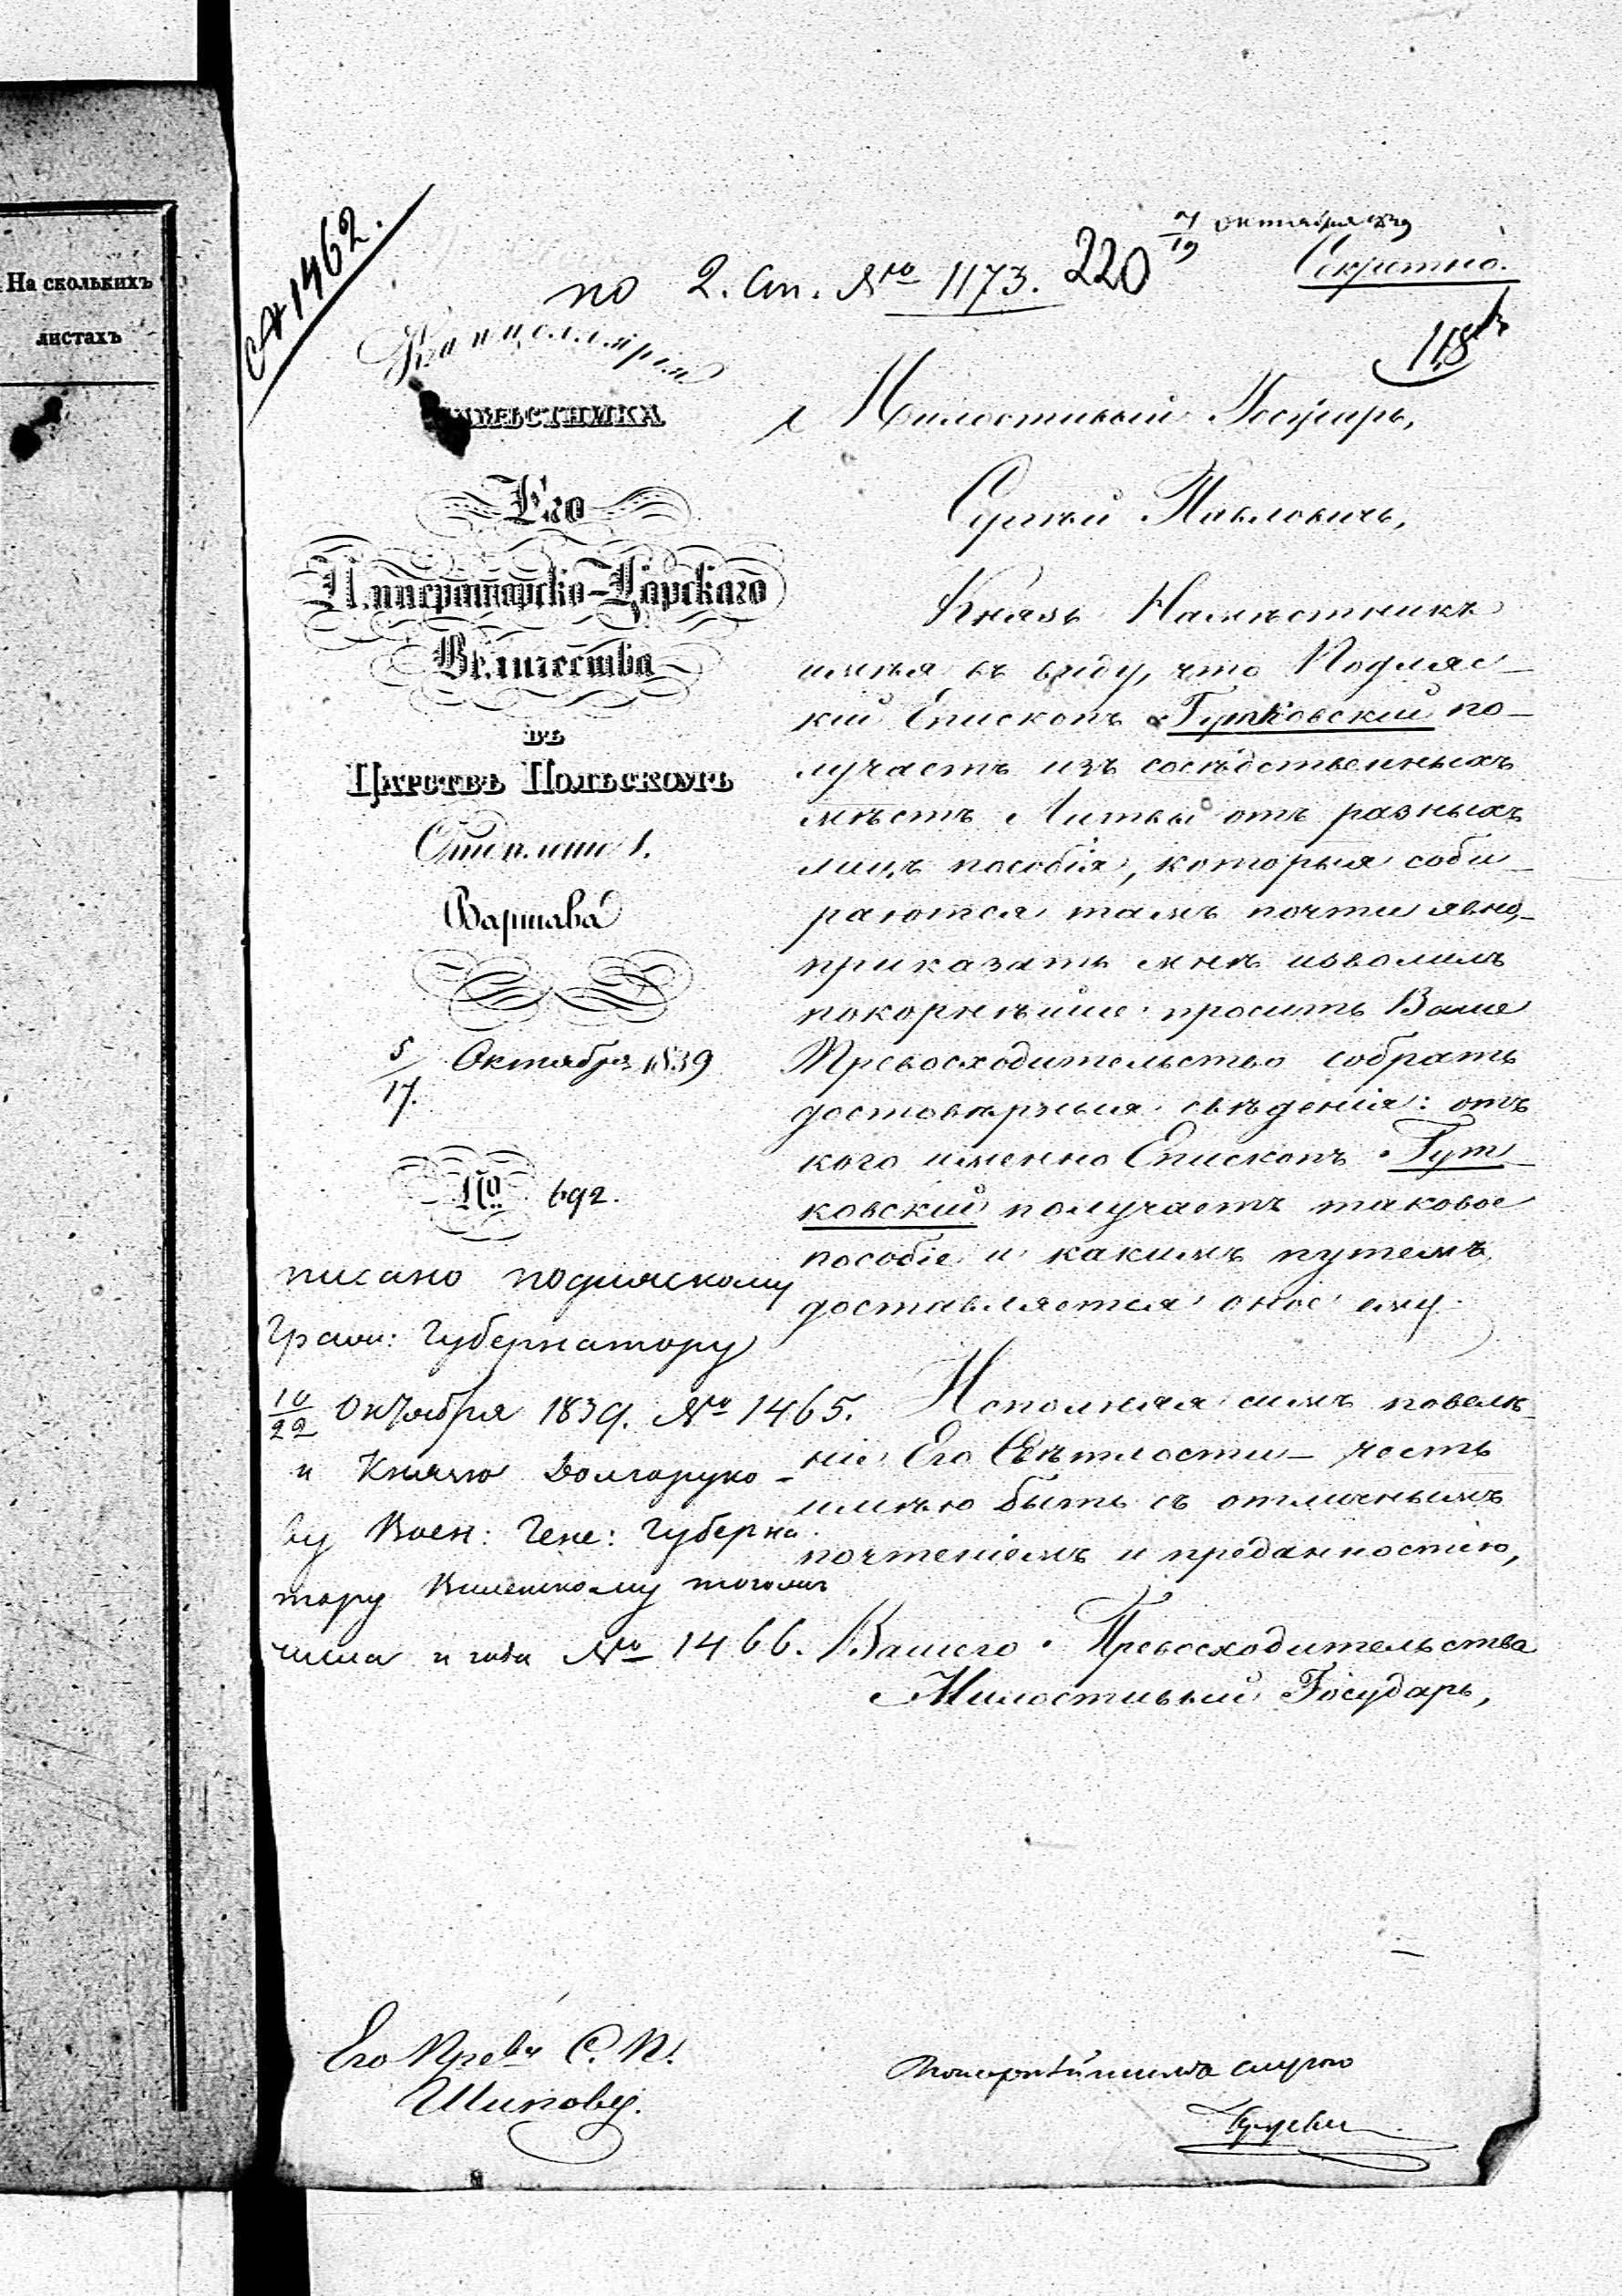 На сколькихъ
листахъ
№ 1462.
7/19 октября 1839
по 2. Ст. № 1173. 220
Секретно.
118
Канцелярія
НАМѢСТНИКА
Его
Императорско-Царскаго
Величества
въ
Царствѣ Польскомъ
Отделеніе 1.
Варшава
5/17. Октября 1839
№ 692.
Милостивый Государь,
Сергѣй Павловичъ,
Князь Намѣстникъ
имѣя въ виду, что Подляс-
кій Епископъ Гутковскій по-
лучаетъ изъ сосѣдственныхъ
мѣстъ Литвы отъ разныхъ
лицъ пособія, которыя соби-
раются тамъ почти явно,-
приказать мнѣ изволилъ
покорнѣйше просить Ваше
Превосходительство собрать
достовѣрныя свѣденія: отъ
кого именно Епископъ Гут-
ковскій получаетъ таковое
пособіе и какимъ путемъ
доставляется оное ему.
Исполняя симъ повелѣ-
ніе Его Свѣтлости - честь
имѣю быть съ отличнымъ
почтеніемъ и преданностію,
Вашего Превосходительства
Милостивый Государь,
писано подляскому
Граж: Губернатору
10/22 Октября 1839. № 1465.
и Князю Долгоруко-
ву Воен: Гене: Губерна
тору Виленскому тогожъ
числа и года № 1466.
Его Прев-ву С. П.
Шипову.
покорнѣйшимъ слугою